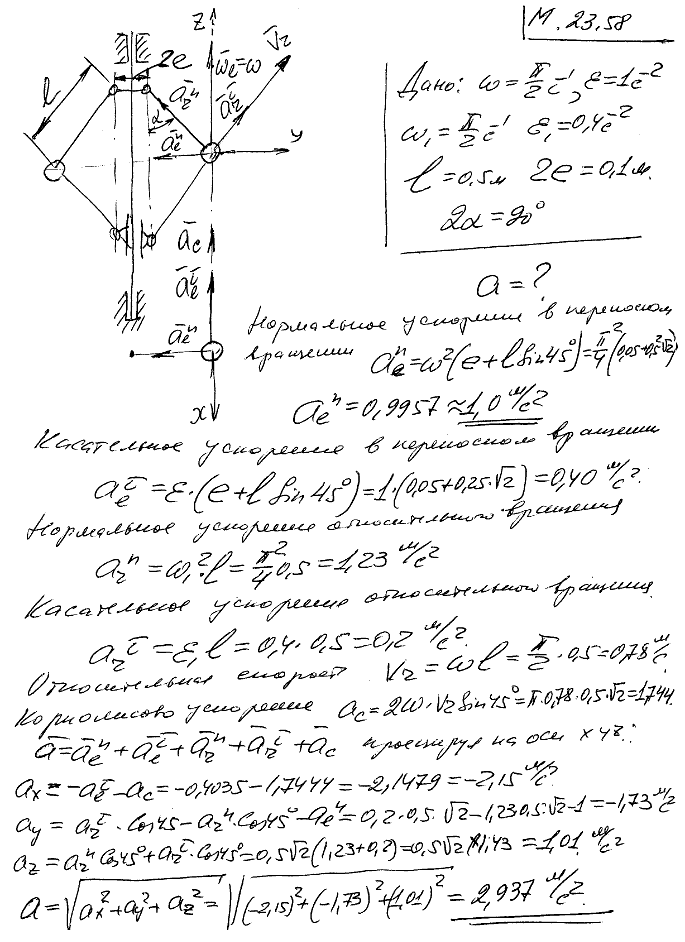 М. 23.58
Дано: ω = π/2 c⁻¹, ε = 1 c⁻²
ω₁ = π/2 c⁻¹ ε₁ = 0,4 c⁻²
l = 0,5 м 2e = 0,1 м.
2α = 90°
a = ?
z
V̄r
ω̄e = ω
2e
l
ārⁿ
ārτ
α
āeⁿ
y
āc
āeτ
āeⁿ
x
Нормальное ускорение в переносном
вращении aeⁿ = ω²(e + l sin 45°) = π²/4 (0,05 + 0,5²√2)
aeⁿ = 0,9957 ≈ 1,0 м/с²
Касательное ускорение в переносном вращении
aeτ = ε·(e + l sin 45°) = 1·(0,05 + 0,25·√2) = 0,40 м/с².
Нормальное ускорение относительного вращения
arⁿ = ω₁²·l = π²/4 0,5 = 1,23 м/с²
Касательное ускорение относительного вращения.
arτ = ε₁l = 0,4·0,5 = 0,2 м/с².
Относительная скорост Vr = ωl = π/2·0,5 = 0,78 м/с.
Кориолисово ускорение ac = 2ω·Vr sin 45° = π·0,78·0,5·√2 = 1,744.
ā = āeⁿ + āeτ + ārⁿ + ārτ + āc проецируя на оси xyz:
ax = -aeτ - ac = -0,4035 - 1,7444 = -2,1479 = -2,15 м/с².
ay = arτ·cos 45 - arⁿ·cos 45° - aeⁿ = 0,2·0,5·√2 - 1,23·0,5·√2 - 1 = -1,73 м/с²
az = arⁿ cos 45° + arτ·cos 45° = 0,5√2(1,23 + 0,2) = 0,5√2·1,43 = 1,01 м/с²
a = √(ax² + ay² + az²) = √((-2,15)² + (-1,73)² + (1,01)²) = 2,937 м/с².